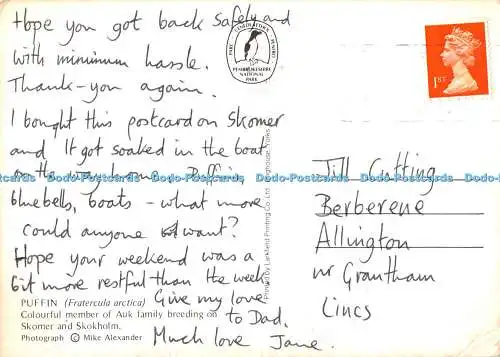 Hope you got back safely and
with minimum hassle.
Thank-you again.
I bought this postcard on Skomer
and it got soaked in the boat
on the way home. Puffins,
bluebells, boats - what more
could anyone want?
Hope your weekend was a
bit more restful than the week
Give my love
to Dad.
Much love Jane.
PUFFIN (Fratercula arctica)
Colourful member of Auk family breeding on
Skomer and Skokholm.
Photograph © Mike Alexander
PEMBROKESHIRE
NATIONAL
PARK
1ST
Jill Cutting
Berberene
Allington
nr Grantham
Lincs
Dodo-Postcards Dodo-Postcards Dodo-Postcards Dodo-Postcards